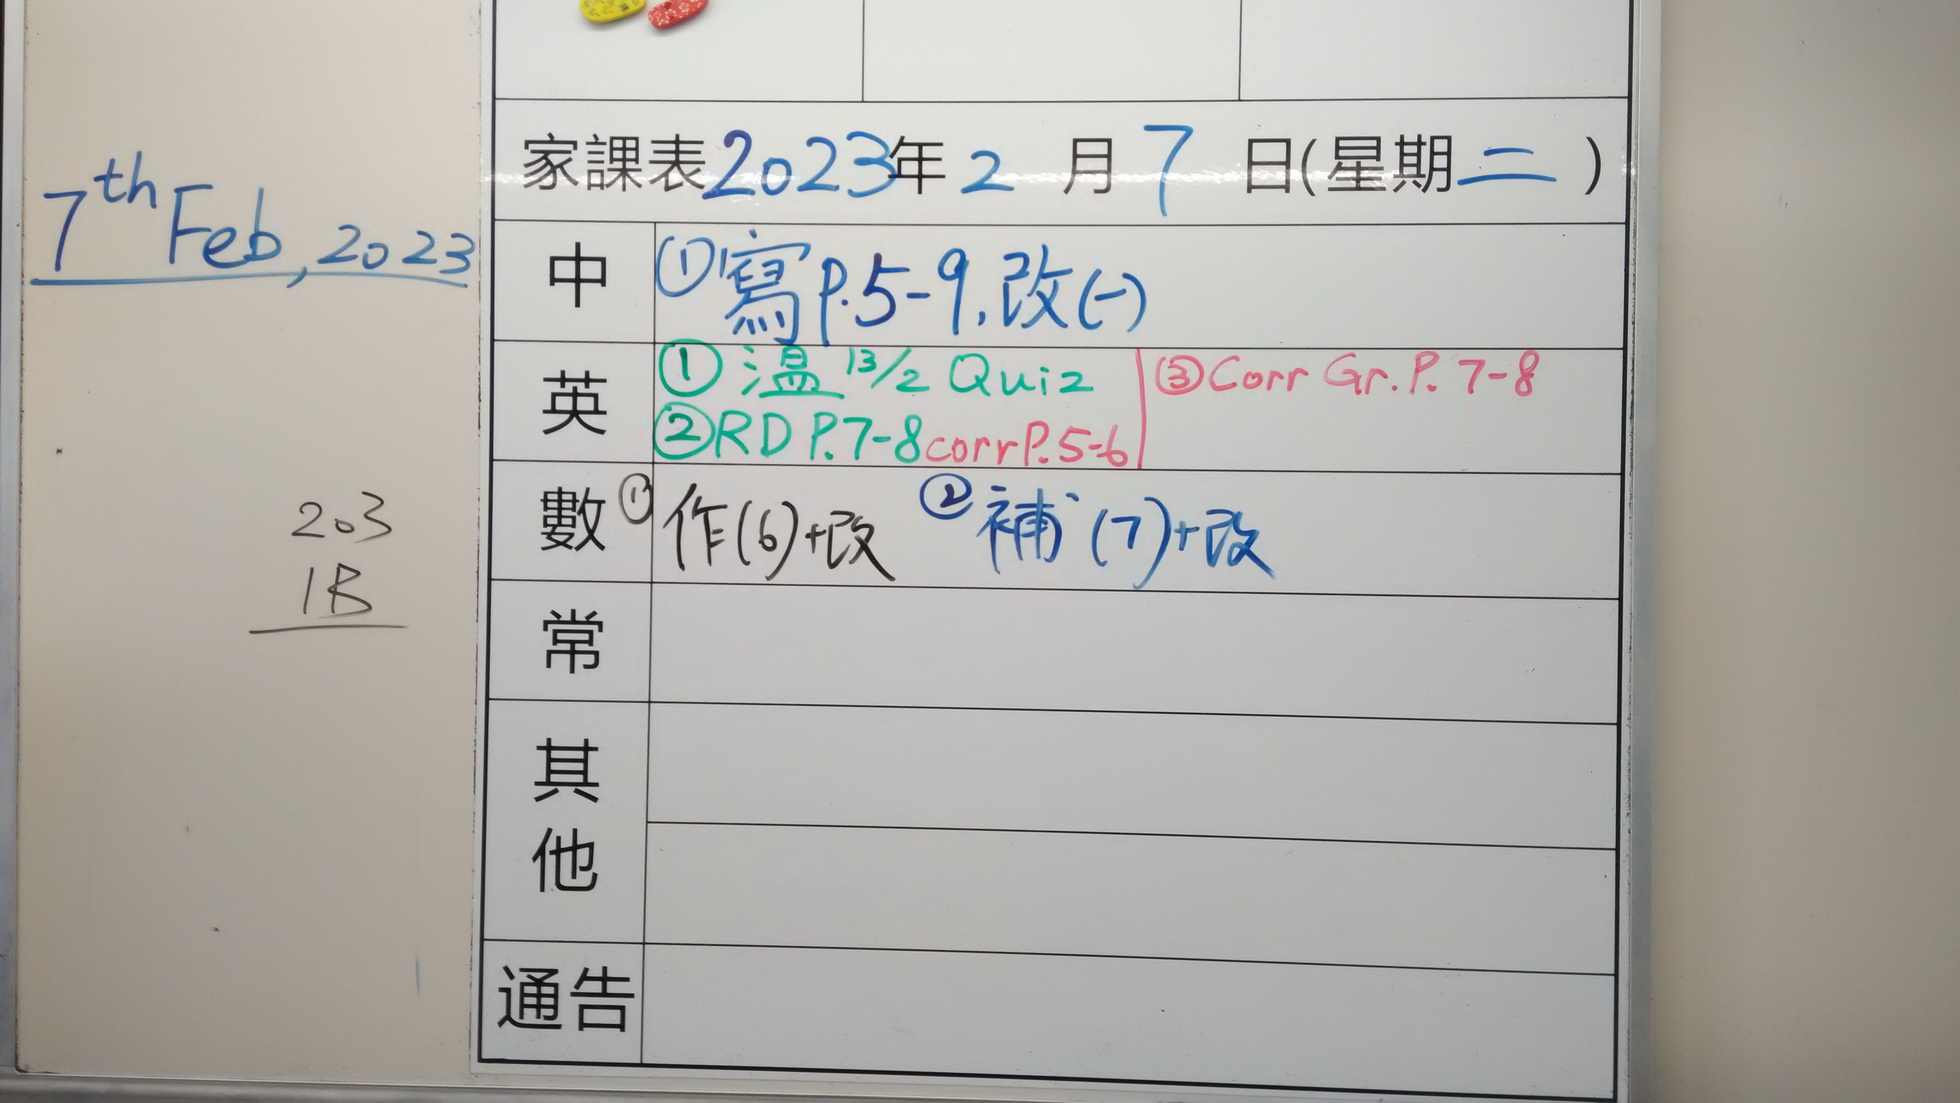 家課表2023年2月7日(星期二)
7th Feb, 2023
中 ①寫P.5-9,改(一)
英 ①温 13/2 Quiz ③Corr Gr. P. 7-8
②RD P.7-8 corr P.5-6
數 ①作(6)+改 ②補(7)+改
203
1B
常
其他
通告